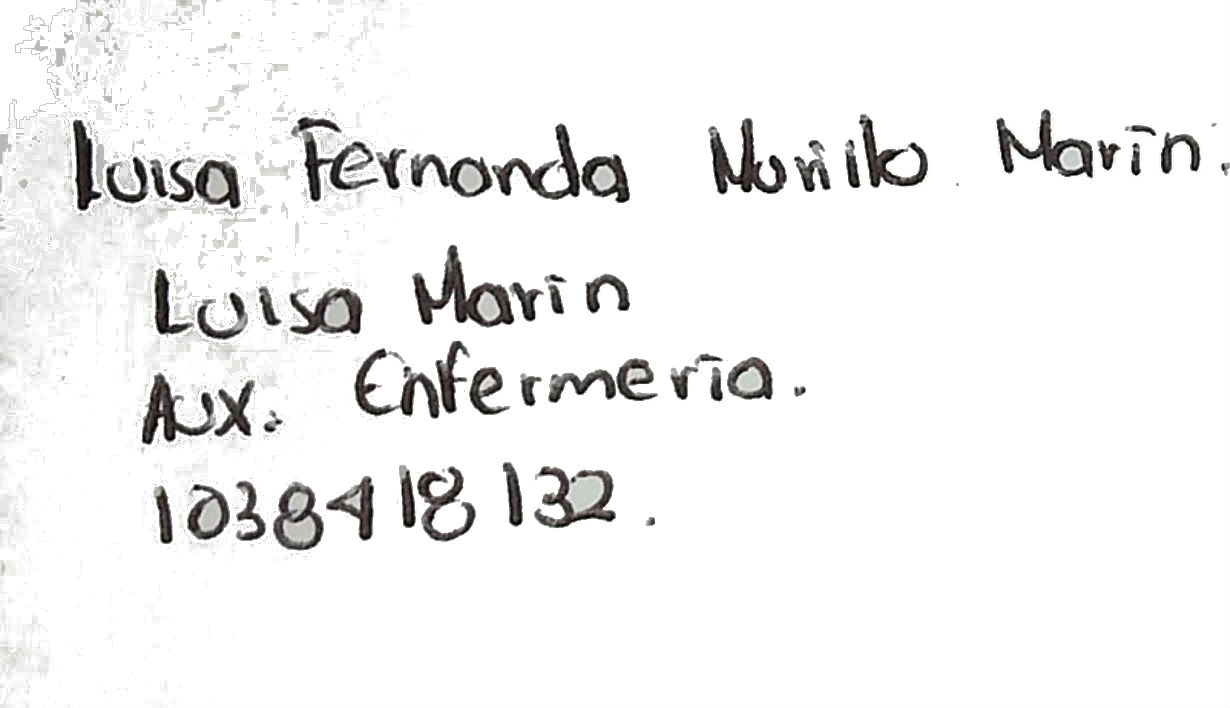 Luisa Fernanda Murillo Marín.
Luisa Marín
Aux. Enfermería.
1038418132.